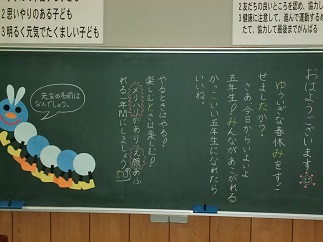 2 思いやりのある子ども
3 明るく元気でたくましい子ども
2 友だちの良いところを認め、協力し
3 健康に注意して、進んで運動する
て、協力して最後までがんばる
おはようございます
ゆかいな春休みをすご
せましたか?
さあ今日からいよいよ
五年生!みんながあこがれる
かっこいい五年生になれたら
いいね。
やるときはやる!
楽しむときは楽しむ!
メリハリがあり、笑顔あふ
れる一年間にしましょう
先生の名前は
なんでしょう。